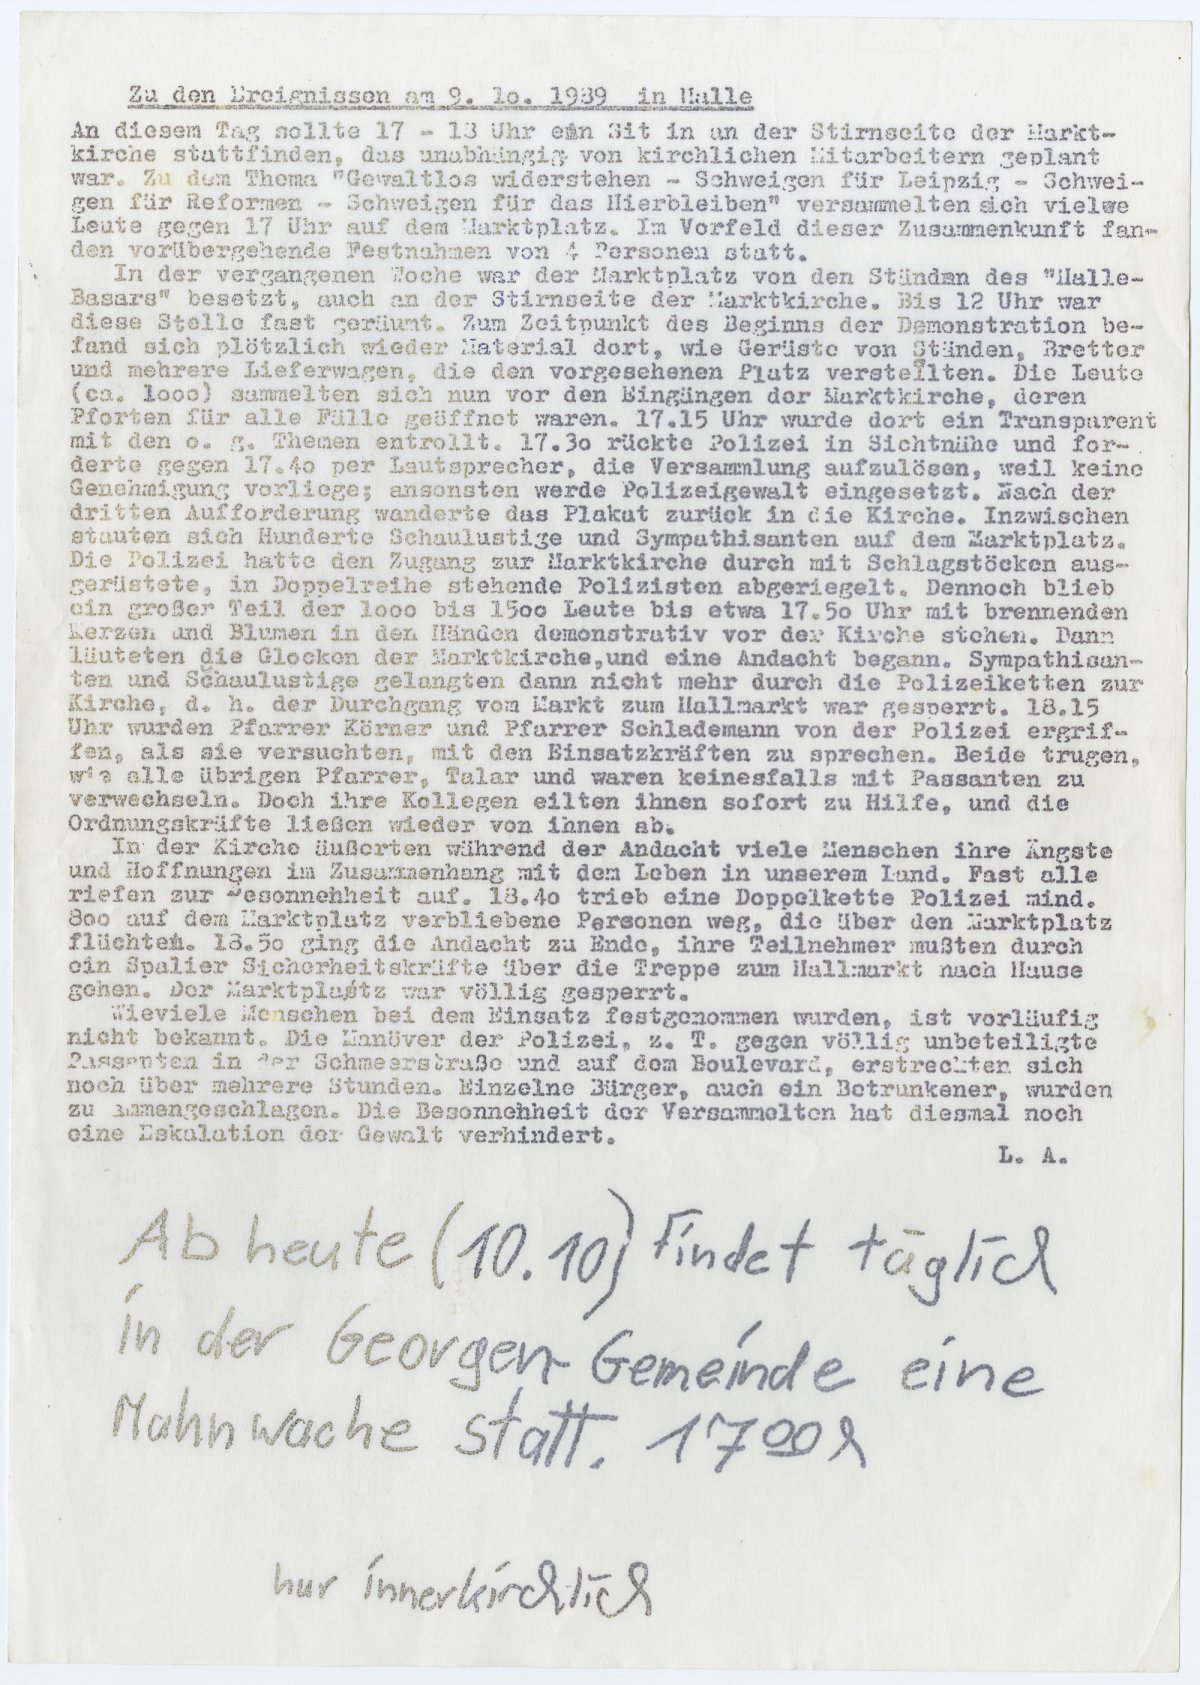 Zu den Ereignissen am 9. lo. 1989 in Halle
An diesem Tag sollte 17 - 18 Uhr ein Sit in an der Stirnseite der Markt-
kirche stattfinden, das unabhängig von kirchlichen Mitarbeitern geplant
war. Zu dem Thema "Gewaltlos widerstehen - Schweigen für Leipzig - Schwei-
gen für Reformen - Schweigen für das Hierbleiben" versammelten sich vielwe
Leute gegen 17 Uhr auf dem Marktplatz. Im Vorfeld dieser Zusammenkunft fan-
den vorübergehende Festnahmen von 4 Personen statt.
In der vergangenen Woche war der Marktplatz von den Ständen des "Halle-
Basars" besetzt, auch an der Stirnseite der Marktkirche. Bis 12 Uhr war
diese Stelle fast geräumt. Zum Zeitpunkt des Beginns der Demonstration be-
fand sich plötzlich wieder Material dort, wie Gerüste von Ständen, Bretter
und mehrere Lieferwagen, die den vorgesehenen Platz verstellten. Die Leute
(ca. looo) sammelten sich nun vor den Eingängen der Marktkirche, deren
Pforten für alle Fälle geöffnet waren. 17.15 Uhr wurde dort ein Transparent
mit den o. g. Themen entrollt. 17.3o rückte Polizei in Sichtnähe und for-
derte gegen 17.4o per Lautsprecher, die Versammlung aufzulösen, weil keine
Genehmigung vorliege; ansonsten werde Polizeigewalt eingesetzt. Nach der
dritten Aufforderung wanderte das Plakat zurück in die Kirche. Inzwischen
stauten sich Hunderte Schaulustige und Sympathisanten auf dem Marktplatz.
Die Polizei hatte den Zugang zur Marktkirche durch mit Schlagstöcken aus-
gerüstete, in Doppelreihe stehende Polizisten abgeriegelt. Dennoch blieb
ein großer Teil der looo bis 15oo Leute bis etwa 17.5o Uhr mit brennenden
Kerzen und Blumen in den Händen demonstrativ vor der Kirche stehen. Dann
läuteten die Glocken der Marktkirche,und eine Andacht begann. Sympathisan-
ten und Schaulustige gelangten dann nicht mehr durch die Polizeiketten zur
Kirche, d. h. der Durchgang vom Markt zum Hallmarkt war gesperrt. 18.15
Uhr wurden Pfarrer Körner und Pfarrer Schlademann von der Polizei ergrif-
fen, als sie versuchten, mit den Einsatzkräften zu sprechen. Beide trugen,
wie alle übrigen Pfarrer, Talar und waren keinesfalls mit Passanten zu
verwechseln. Doch ihre Kollegen eilten ihnen sofort zu Hilfe, und die
Ordnungskräfte ließen wieder von ihnen ab.
In der Kirche äußerten während der Andacht viele Menschen ihre Ängste
und Hoffnungen im Zusammenhang mit dem Leben in unserem Land. Fast alle
riefen zur Besonnehheit auf. 18.4o trieb eine Doppelkette Polizei mind.
8oo auf dem Marktplatz verbliebene Personen weg, die über den Marktplatz
flüchten. 18.5o ging die Andacht zu Ende, ihre Teilnehmer mußten durch
ein Spalier Sicherheitskräfte über die Treppe zum Hallmarkt nach Hause
gehen. Der Marktplatz war völlig gesperrt.
Wieviele Menschen bei dem Einsatz festgenommen wurden, ist vorläufig
nicht bekannt. Die Manöver der Polizei, z. T. gegen völlig unbeteiligte
Passanten in der Schmeerstraße und auf dem Boulevard, erstreckten sich
noch über mehrere Stunden. Einzelne Bürger, auch ein Betrunkener, wurden
zusammengeschlagen. Die Besonnehheit der Versammelten hat diesmal noch
eine Eskalation der Gewalt verhindert.
L. A.
Ab heute (10.10) findet täglich
in der Georgen-Gemeinde eine
Mahnwache statt. 17⁰⁰ h
nur innerkirchlich